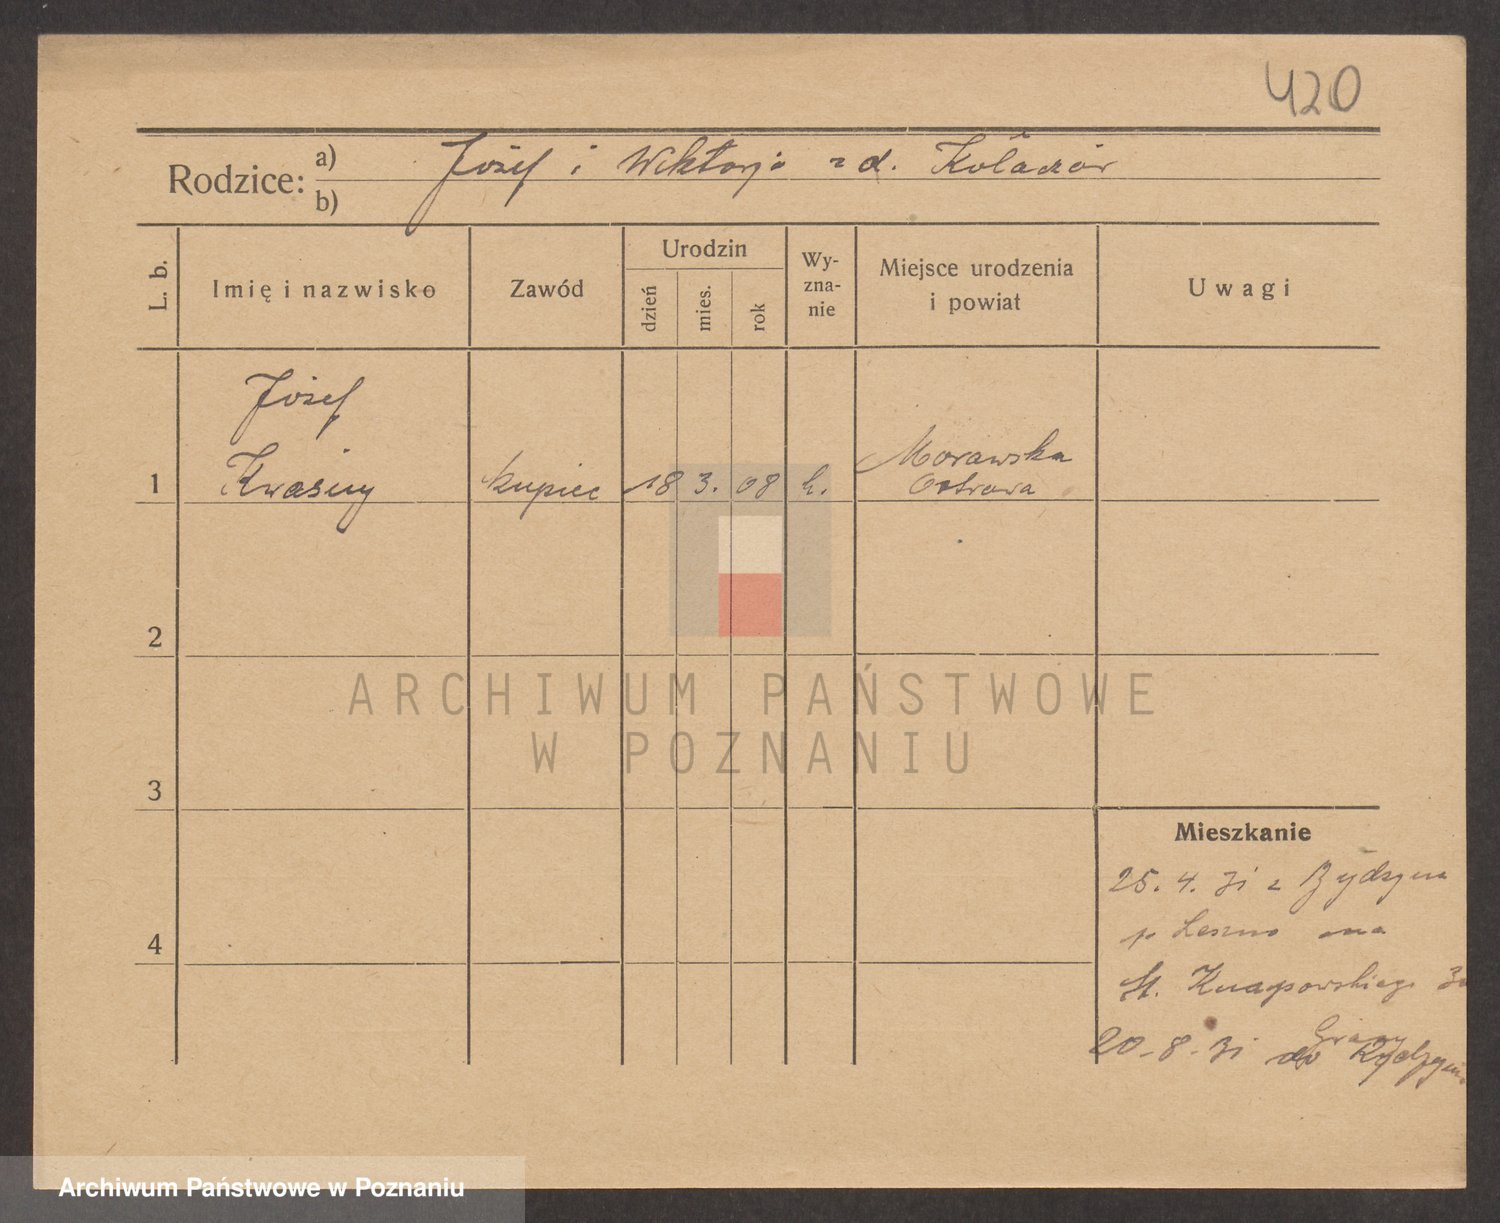 420
Rodzice: a) Józef i Wiktorja z d. Kołaczów
b)
L. b.
Imię i nazwisko
Zawód
Urodzin
dzień
mies.
rok
Wy-
zna-
nie
Miejsce urodzenia
i powiat
Uwagi
Józef
1 Kwaśny kupiec 18 3. 08 k. Morawska
Ostrawa
2
ARCHIWUM PAŃSTWOWE
W POZNANIU
3
Mieszkanie
25. 4. 31 z Rydzyna
p Leszno na
4
Knapowskiego
20-8-31 do Rydzyna
Archiwum Państwowe w Poznaniu